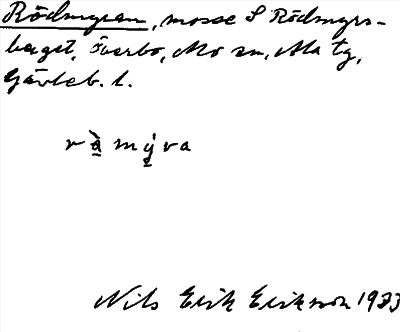 Rödmyran, mosse S Rödmyrs-
berget, Överbo, Mo sn, Ala tg,
Gävleb. l.
r à m ý r a
Nils Erik Erikson 1933